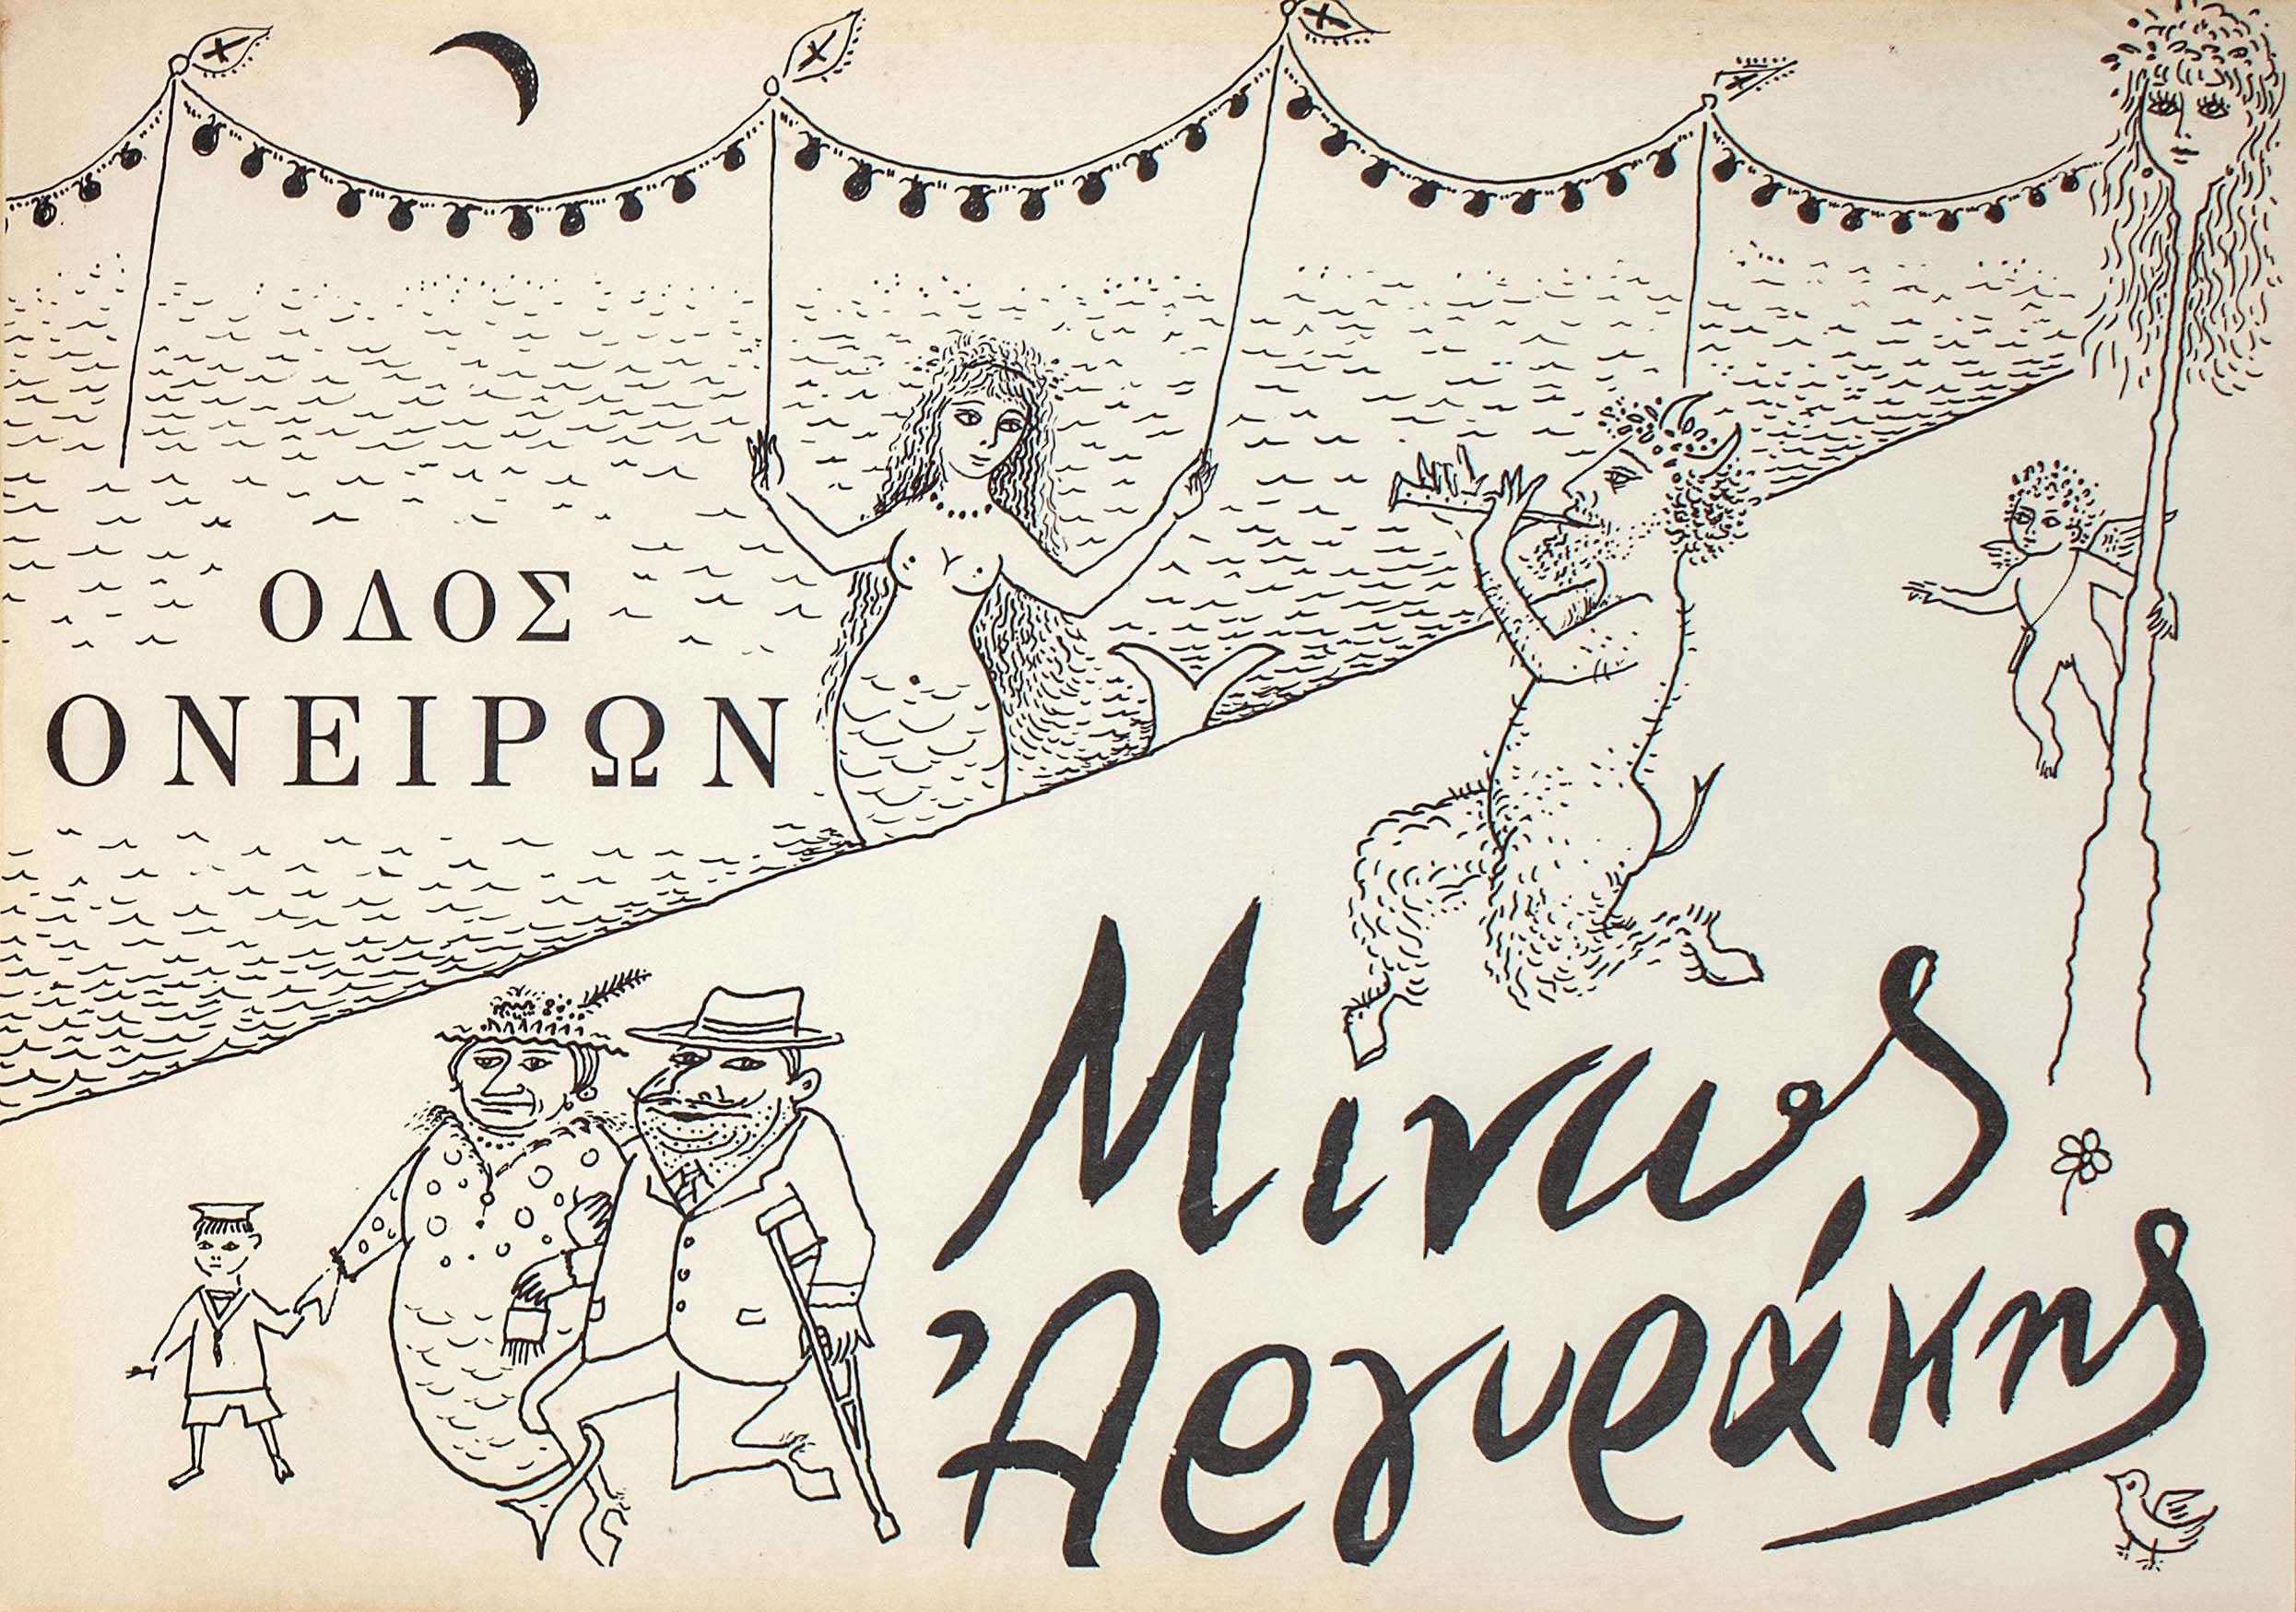 ΟΔΟΣ
ΟΝΕΙΡΩΝ
Μίνως
Ἀργυράκης